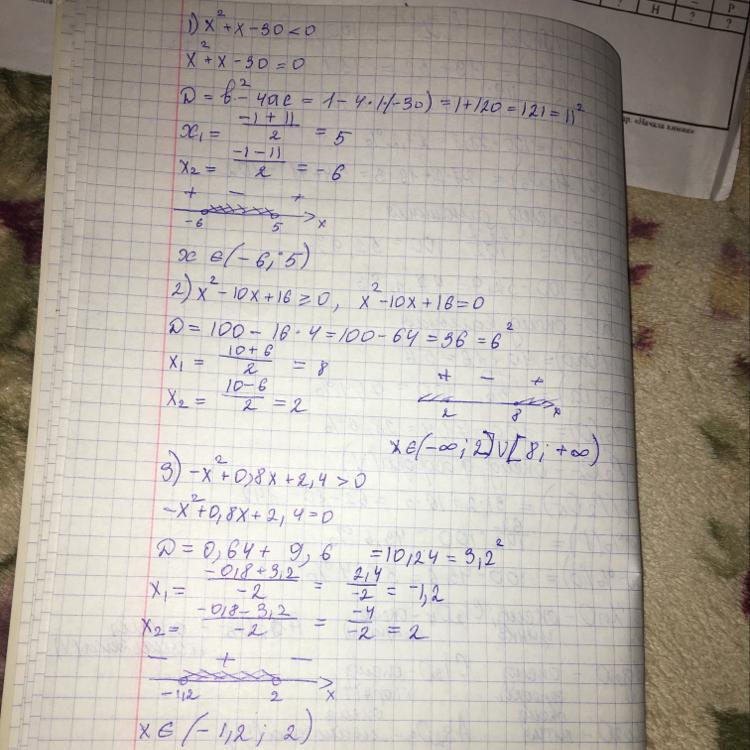 Р
Н
?
?
ир. «Начала химии»
1) x² + x - 30 < 0
x² + x - 30 = 0
D = b² - 4ac = 1 - 4·1(-30) = 1 + 120 = 121 = 11²
x₁ = (-1 + 11)/2 = 5
x₂ = (-1 - 11)/2 = -6
+ - +
-6 5 x
x ∈ (-6; 5)
2) x² - 10x + 16 ≥ 0, x² - 10x + 16 = 0
D = 100 - 16·4 = 100 - 64 = 36 = 6²
x₁ = (10 + 6)/2 = 8
x₂ = (10 - 6)/2 = 2
+ - +
2 8 x
x ∈ (-∞; 2] ∪ [8; +∞)
3) -x² + 0,8x + 2,4 > 0
-x² + 0,8x + 2,4 = 0
D = 0,64 + 9,6 = 10,24 = 3,2²
x₁ = (-0,8 + 3,2)/-2 = 2,4/-2 = -1,2
x₂ = (-0,8 - 3,2)/-2 = -4/-2 = 2
- + -
-1,2 2 x
x ∈ (-1,2; 2)